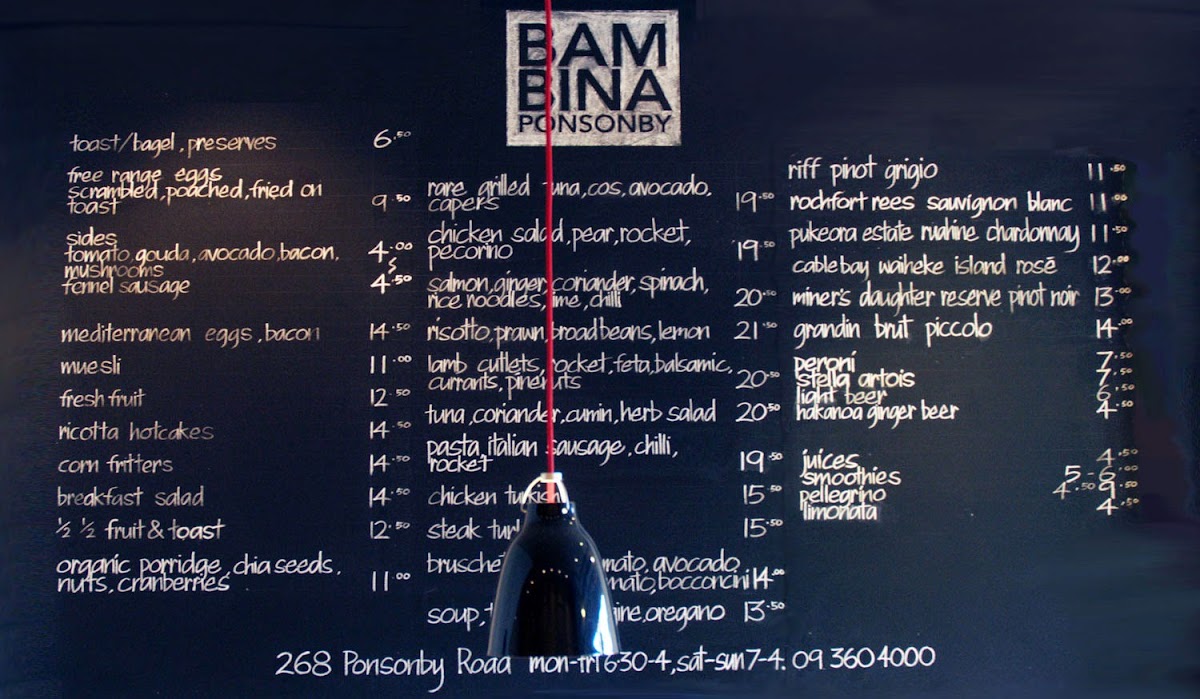 BAM
BINA
PONSONBY
toast/bagel, preserves 6.50
free range eggs
scrambled, poached, fried on
toast 9.50
sides
tomato, gouda, avocado, bacon, 4.00
mushrooms
fennel sausage 4.50
mediterranean eggs, bacon 14.50
muesli 11.00
fresh fruit 12.50
ricotta hotcakes 14.50
corn fritters 14.50
breakfast salad 14.50
½ ½ fruit & toast 12.50
organic porridge, chia seeds,
nuts, cranberries 11.00
rare grilled tuna, cos, avocado,
capers 19.50
chicken salad, pear, rocket,
pecorino 19.50
salmon, ginger, coriander, spinach,
rice noodles, lime, chilli 20.50
risotto, prawn, broadbeans, lemon 21.50
lamb cutlets, rocket, feta, balsamic,
currants, pinenuts 20.50
tuna, coriander, cumin, herb salad 20.50
pasta, italian sausage, chilli,
rocket 19.50
chicken turkish 15.50
steak 15.50
avocado
bocconcini 14.00
soup, oregano 13.50
riff pinot grigio 11.50
rochfort rees sauvignon blanc 11.00
pukeora estate ruahine chardonnay 11.50
cable bay waiheke island rosē 12.00
miner's daughter reserve pinot noir 13.00
grandin brut piccolo 14.00
peroni 7.50
stella artois 7.50
light beer 6.50
hakanoa ginger beer 4.50
juices 4.50
smoothies 5-6.00
pellegrino 4.50 9
limonata 4.50
268 Ponsonby Road mon-fri 6.30-4, sat-sun 7-4. 09 360 4000